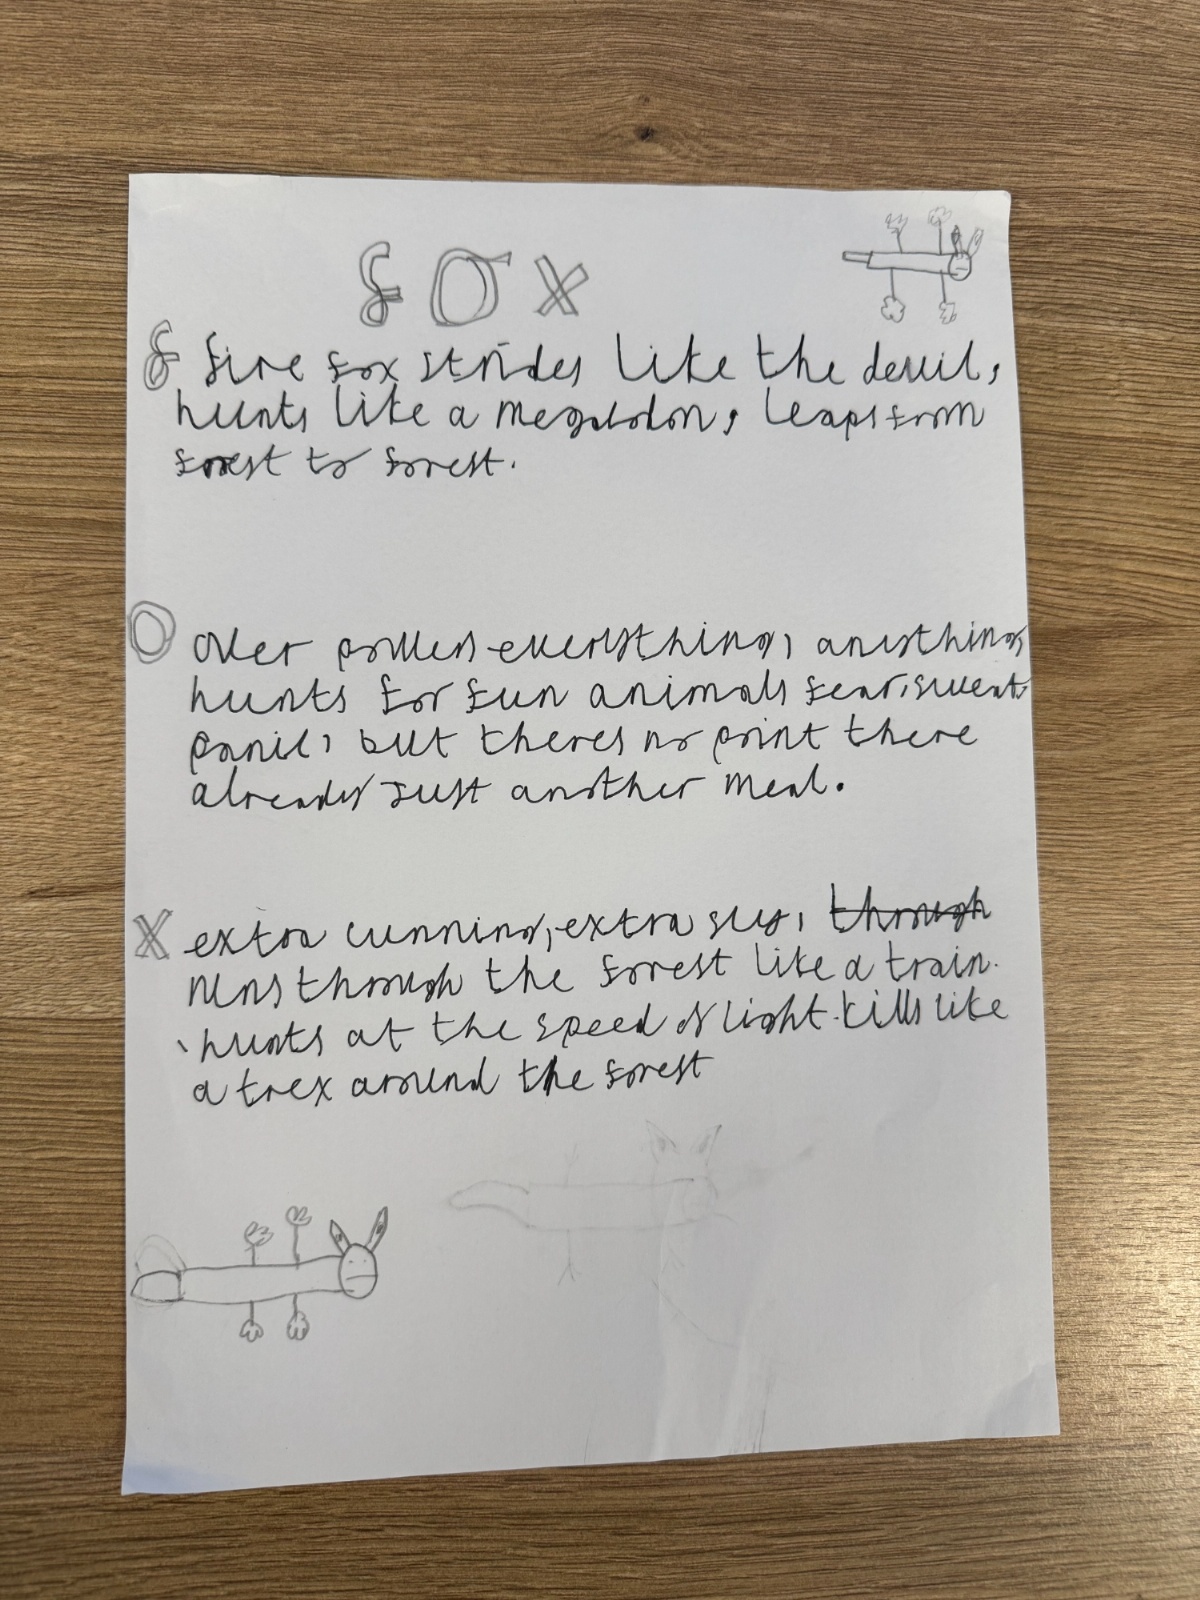 fox
f fire fox strides like the devil,
hunts like a megalodon, leaps from
forest to forest.
O Over powers everything, anything
hunts for fun animals fear, sweat,
panic, but theres no point there
already just another meal.
X extra cunning, extra sly, through
runs through the forest like a train.
hunts at the speed of light. kills like
a trex around the forest